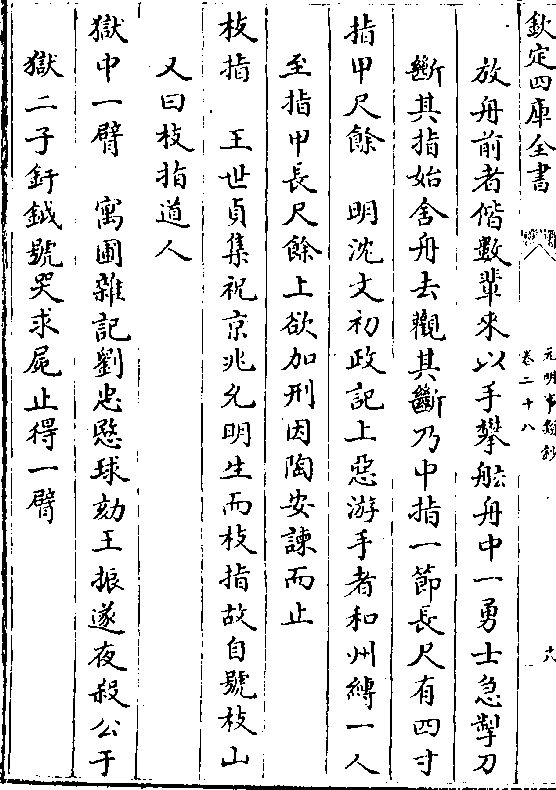 欽定四庫全書
元明事類鈔
卷二十八
六
放舟前者偕數輩來以手攀舷舟中一勇士急掣刀
斷其指始舍舟去觀其斷乃中指一節長尺有四寸
指甲尺餘　明沈文初政記上惡游手者和州縛一人
至指甲長尺餘上欲加刑因陶安諫而止
枝指　王世貞集祝京兆允明生而枝指故自號枝山
又曰枝指道人
獄中一臂　寓圃雜記劉忠愍球劾王振遂夜殺公于
獄二子釪鉞號哭求屍止得一臂